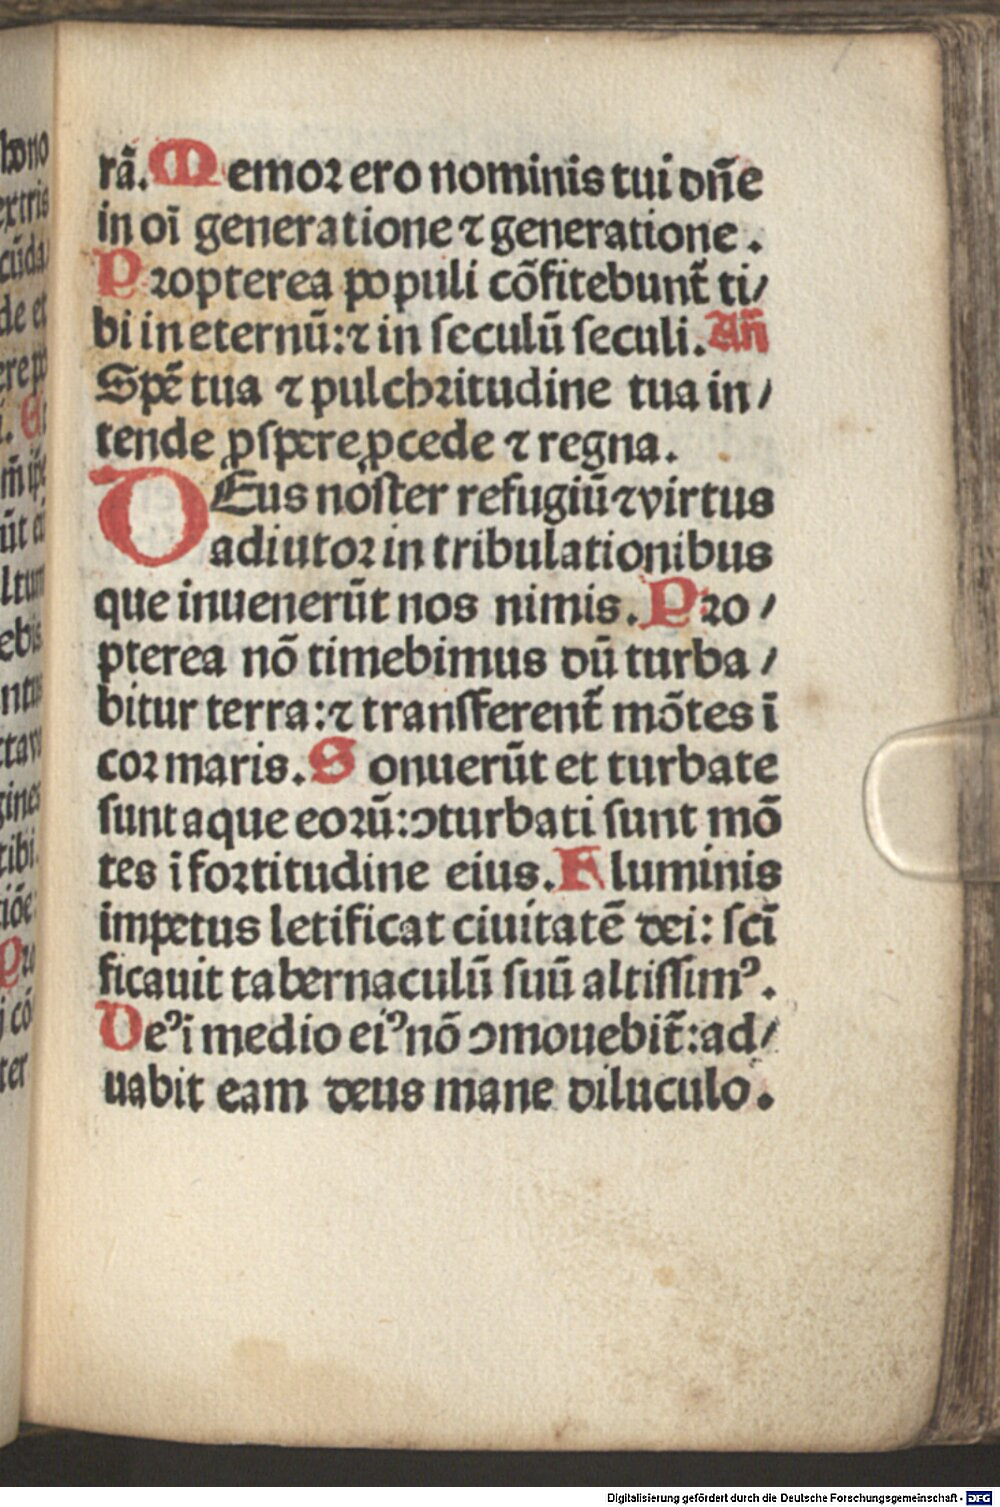 rã. Memor ero nominis tui dñe
in oĩ generatione ⁊ generatione.
Propterea populi cõfitebunt̃ ti/
bi in eternũ: ⁊ in seculũ seculi. Añ
Spẽ tua ⁊ pulchritudine tua in/
tende ꝓspere ꝓcede ⁊ regna.
DEus noster refugiũ ⁊ virtus
adiutor in tribulationibus
que inuenerũt nos nimis. Pro/
pterea nõ timebimus dũ turba/
bitur terra: ⁊ transferent̃ mõtes ĩ
cor maris. Sonuerũt et turbate
sunt aque eorũ: ↄturbati sunt mõ
tes ĩ fortitudine eius. Fluminis
impetus letificat ciuitatẽ dei: scĩ
ficauit tabernaculũ suũ altissimꝰ.
Deꝰ ĩ medio eiꝰ nõ ↄmouebit̃: ad/
uabit eam deus mane diluculo.
Digitalisierung gefördert durch die Deutsche Forschungsgemeinschaft - DFG